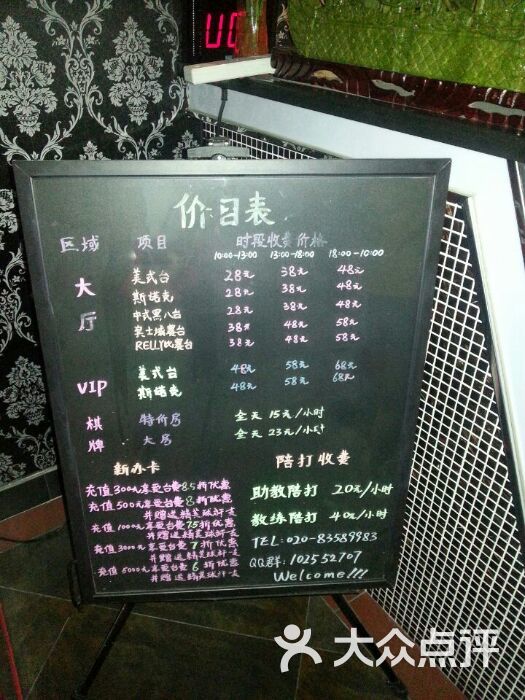 价目表
区域 项目 时段收费价格
10:00-13:00 13:00-18:00 18:00-10:00
大厅
美式台 28元 38元 48元
斯诺克 28元 38元 48元
中式黑八台 28元 38元 58元
38元 48元 58元
RELLY比赛台 38元 48元 58元
VIP
美式台 48元 58元 68元
斯诺克 48元 58元 68元
棋牌
特价房 全天 15元/小时
大房 全天 23元/小时
新办卡
充值300元享受台费8.5折优惠
充值500元享受台费8折优惠
并赠送精美球杆一支
充值1000元享受台费7.5折优惠
并赠送精美球杆一支
充值3000元享受台费7折优惠
并赠送精美球杆一支
充值5000元享受台费6折优惠
并赠送精美球杆一支
陪打收费
助教陪打 20元/小时
教练陪打 40元/小时
TEL:020-83589983
QQ群:102552707
Welcome!!!
大众点评